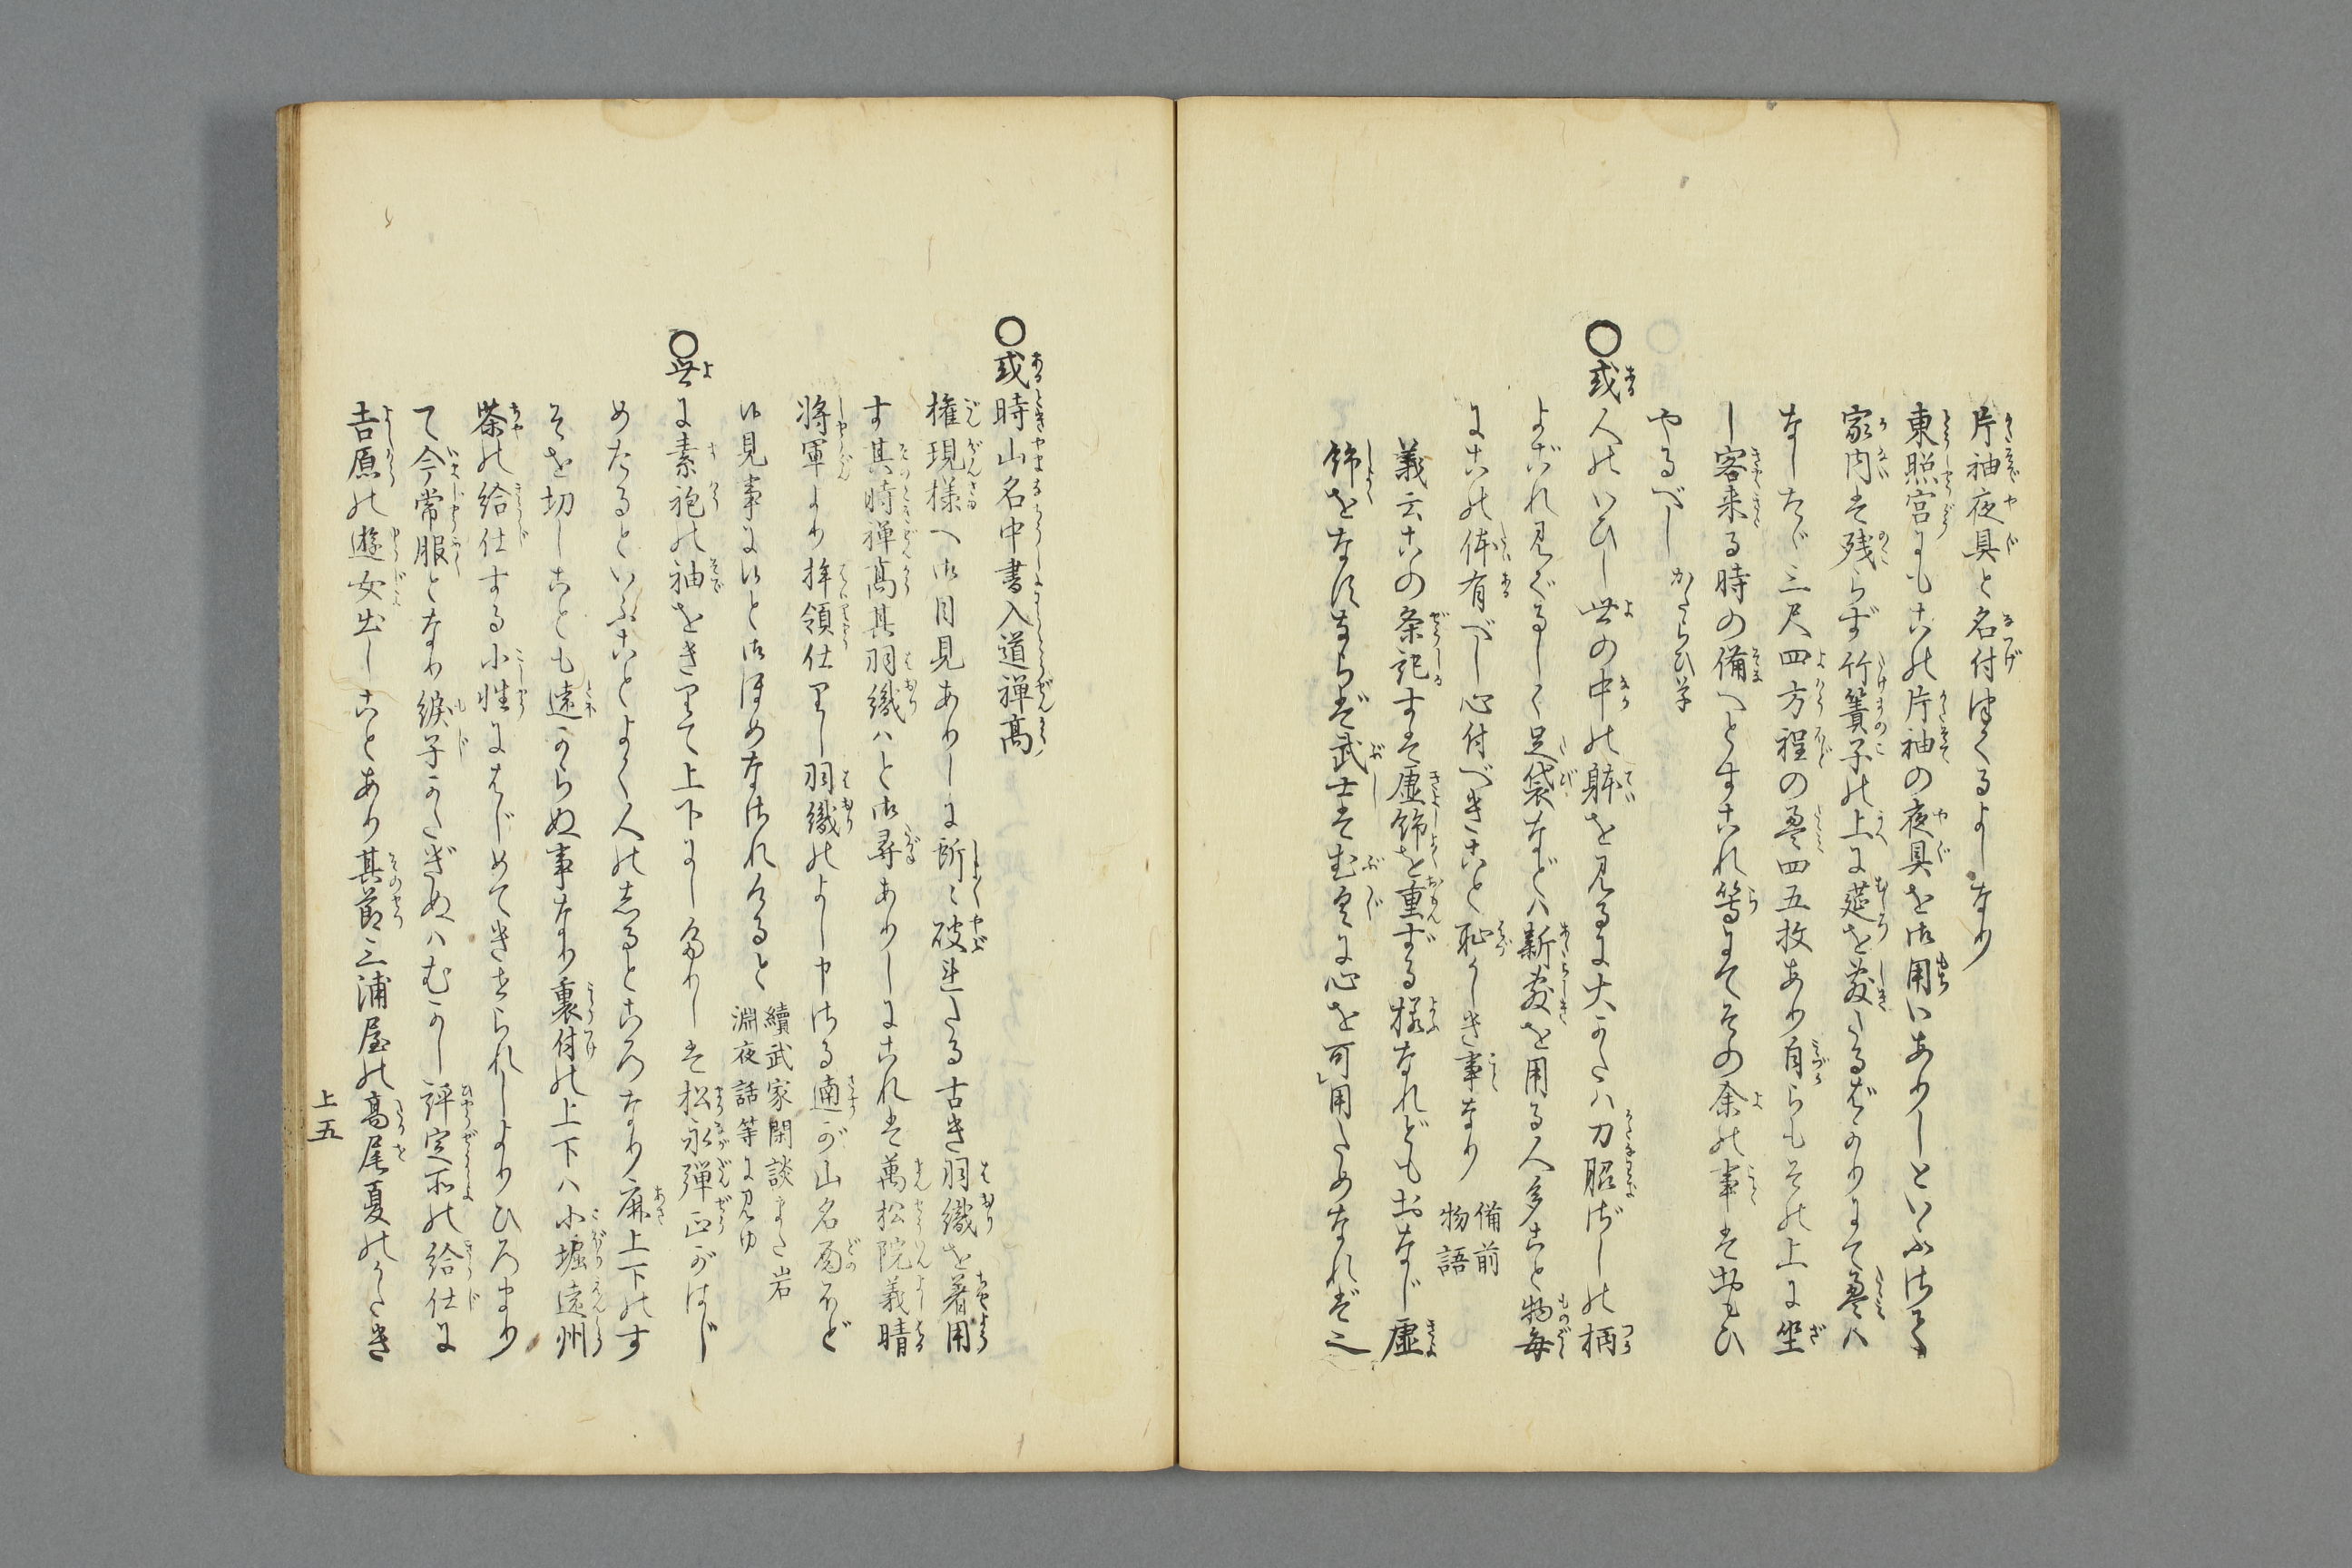 片袖夜具と名付はくるよしなり
東照宮にもこの片袖の夜具を御用ひありしといふさて
家内は残らず竹簀子の上に莚を敷たるばかりにて畳ハ
なしたゞ三尺四方程の畳四五枚あり自らもその上に坐
し客来る時の備へとすこれ等にてその余の事はおもひ
やるべし
〇或人のいひし世の中の躰を見るに大かたハ刀脇ざしの柄
よごれ見ぐるしく足袋などハ新敷を用る人多こと物毎
にこの体有べし心付べきこと恥かしき事なり 備前物語
義云この条記すは虚飾を重ずる様なれどもおなじ虚
飾をなすならば武士は武具に心を可用ためなればこ
〇或時山名中書入道禅高
権現様へ御目見ありしに所々破れたる古き羽織を着用
す其時禅高其羽織ハと御尋ありしにこれは萬松院義晴
将軍より拝領仕りし羽織のよし申ける遖が山名殿ほど
御見事に候と御ほめなされけると 續武家閑談また岩淵夜話等に見ゆ
〇世に素袍の袖をきりて上下にしたりしは松永弾正がはじ
めたるといふことよく人のしるところなり麻上下のす
そを切しことも遠からぬ事なり裏付の上下ハ小堀遠州
茶の給仕する小性にはじめてきせられしよりひろまり
て今常服となり綟子かたぎぬハむかし評定所の給仕に
吉原の遊女出しことあり其節三浦屋の高尾夏のかたき
上五